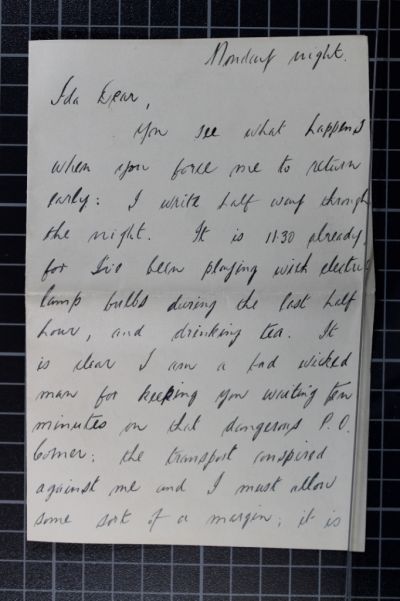 Monday night.
Ida Dear,
You see what happens
when you force me to return
early: I write half way through
the night. It is 11.30 already,
for I've been playing with electric
lamp bulbs during the last half
hour, and drinking tea. It
is clear I am a bad wicked
man for keeping you waiting ten
minutes on that dangerous P.O.
Corner: the transport conspired
against me and I must allow
some sort of a margin; it is